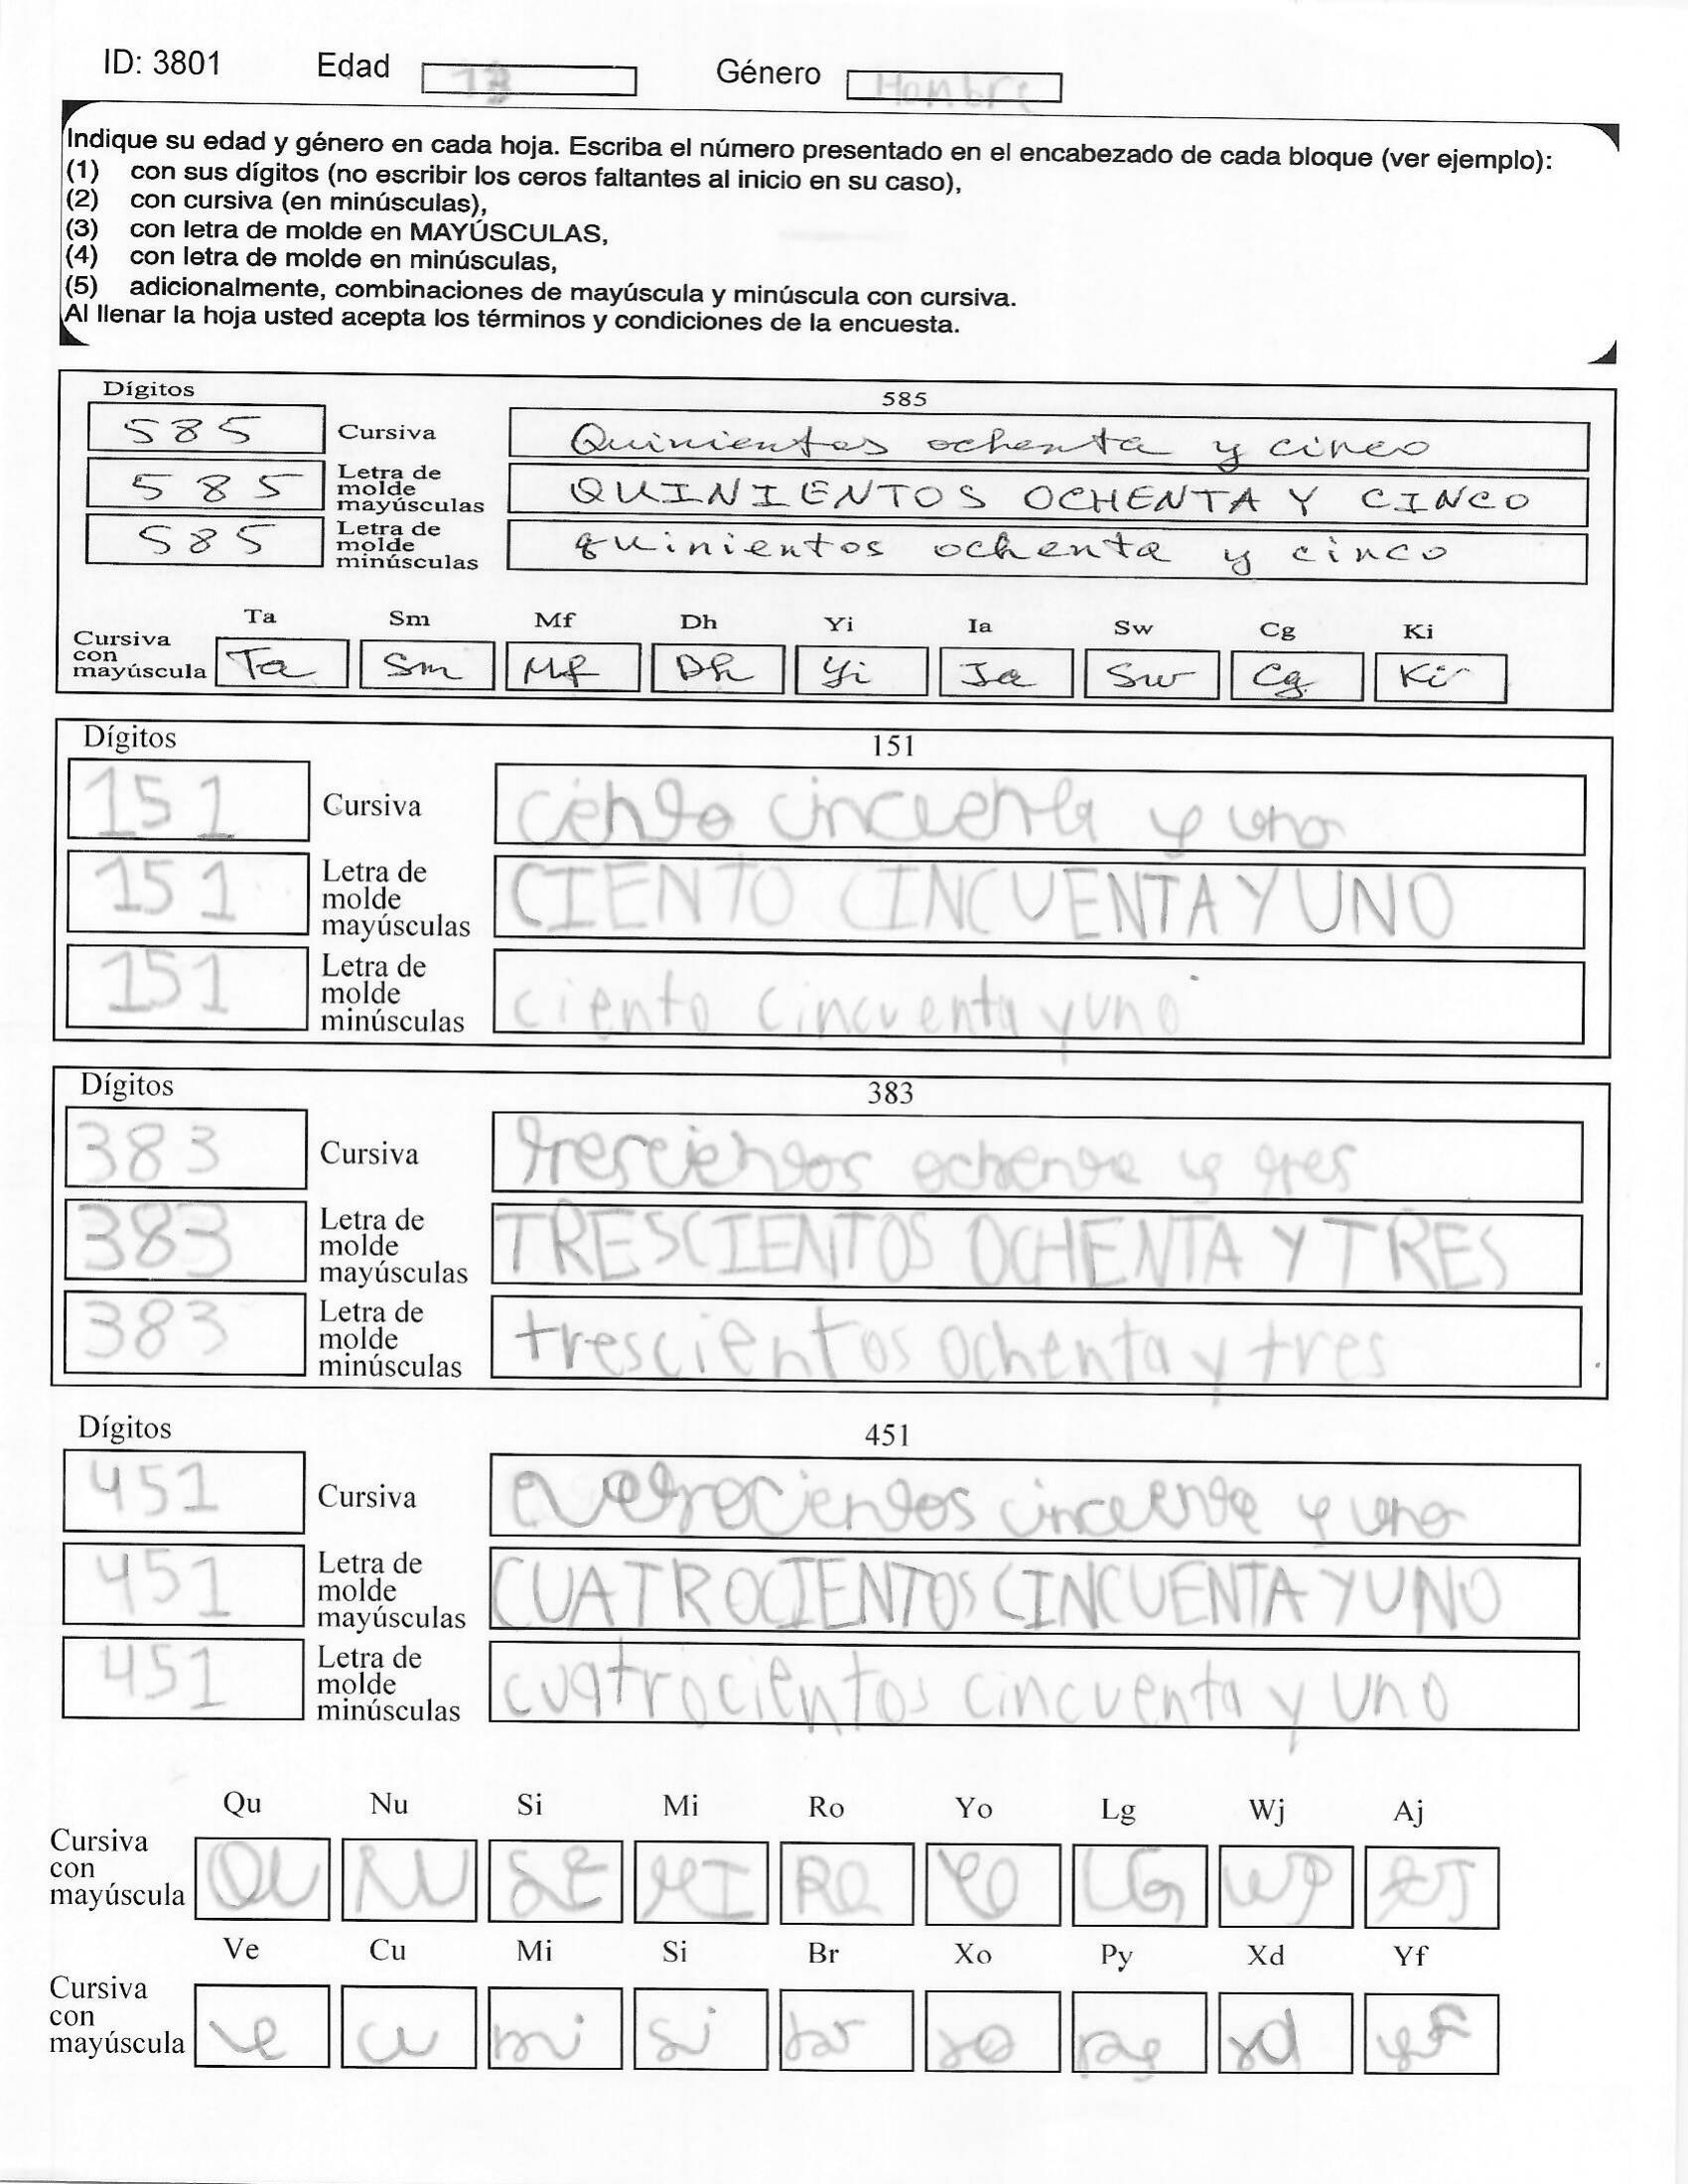 ID: 3801 Edad 13 Género Hombre
Indique su edad y género en cada hoja. Escriba el número presentado en el encabezado de cada bloque (ver ejemplo):
(1) con sus dígitos (no escribir los ceros faltantes al inicio en su caso),
(2) con cursiva (en minúsculas),
(3) con letra de molde en MAYÚSCULAS,
(4) con letra de molde en minúsculas,
(5) adicionalmente, combinaciones de mayúscula y minúscula con cursiva.
Al llenar la hoja usted acepta los términos y condiciones de la encuesta.
Dígitos 585
585 Cursiva Quinientos ochenta y cinco
585 Letra de molde mayúsculas QUINIENTOS OCHENTA Y CINCO
585 Letra de molde minúsculas quinientos ochenta y cinco
Ta Sm Mf Dh Yi Ia Sw Cg Ki
Cursiva con mayúscula Ta Sm Mf Dh Yi Ia Sw Cg Ki
Dígitos 151
151 Cursiva ciento cincuenta y uno
151 Letra de molde mayúsculas CIENTO CINCUENTA Y UNO
151 Letra de molde minúsculas ciento cincuenta y uno
Dígitos 383
383 Cursiva trescientos ochenta y tres
383 Letra de molde mayúsculas TRESCIENTOS OCHENTA Y TRES
383 Letra de molde minúsculas trescientos ochenta y tres
Dígitos 451
451 Cursiva cuatrocientos cincuenta y uno
451 Letra de molde mayúsculas CUATROCIENTOS CINCUENTA Y UNO
451 Letra de molde minúsculas cuatrocientos cincuenta y uno
Qu Nu Si Mi Ro Yo Lg Wj Aj
Cursiva con mayúscula QU NU MI RO YO LG WJ AJ
Ve Cu Mi Si Br Xo Py Xd Yf
Cursiva con mayúscula ve cu mi si br xo py xd yf